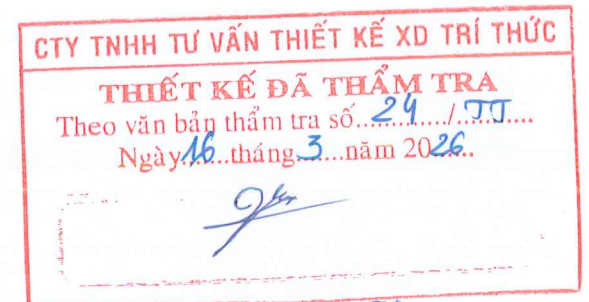 CTY TNHH TƯ VẤN THIẾT KẾ XD TRÍ THỨC
THIẾT KẾ ĐÃ THẨM TRA
Theo văn bản thẩm tra số...24...../...TT....
Ngày16.....tháng..3....năm 2026....